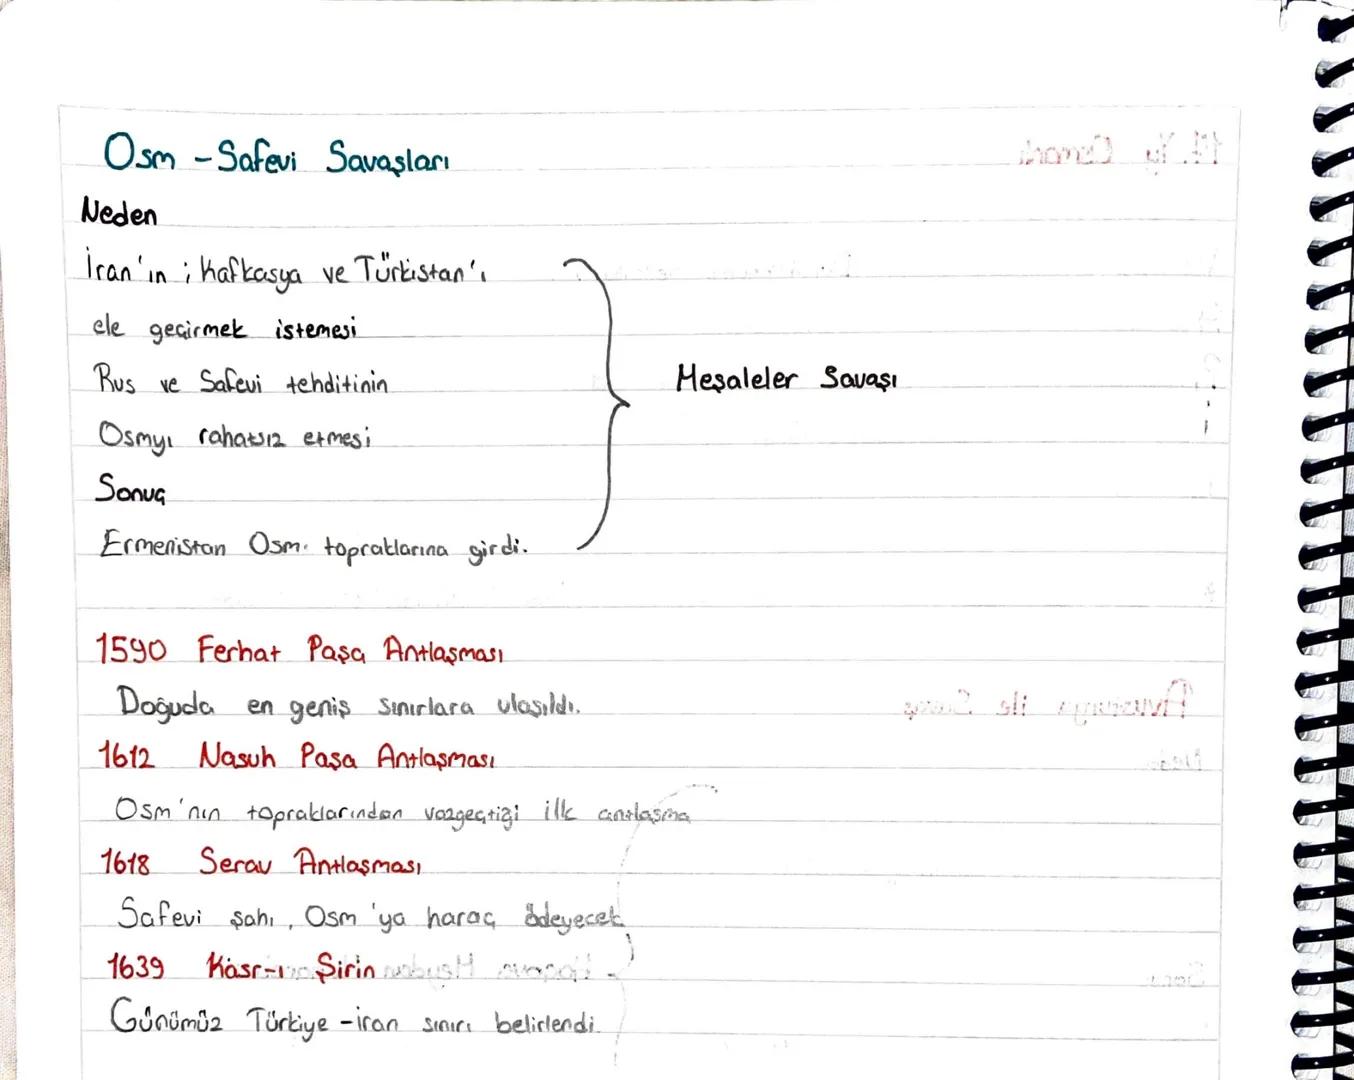 Osm - Safevi Savaşları
Neden
İran'ın ; Kafkasya ve Türkistan'ı
ele geçirmek istemesi
Rus ve Safevi tehditinin
Osmyı rahatsız etmesi
Meşaleler Savaşı
Sonuç
Ermenistan Osm. topraklarına girdi.
1590 Ferhat Paşa Antlaşması
Doğuda en geniş sınırlara ulaşıldı.
1612 Nasuh Paşa Antlaşması
Osm'nın topraklarından vazgeçtiği ilk antlaşma
1618 Serav Antlaşması
Safevi şahı, Osm'ya haraç ödeyecek
1639 Kasr-ı Şirin
Günümüz Türkiye - İran sınırı belirlendi.